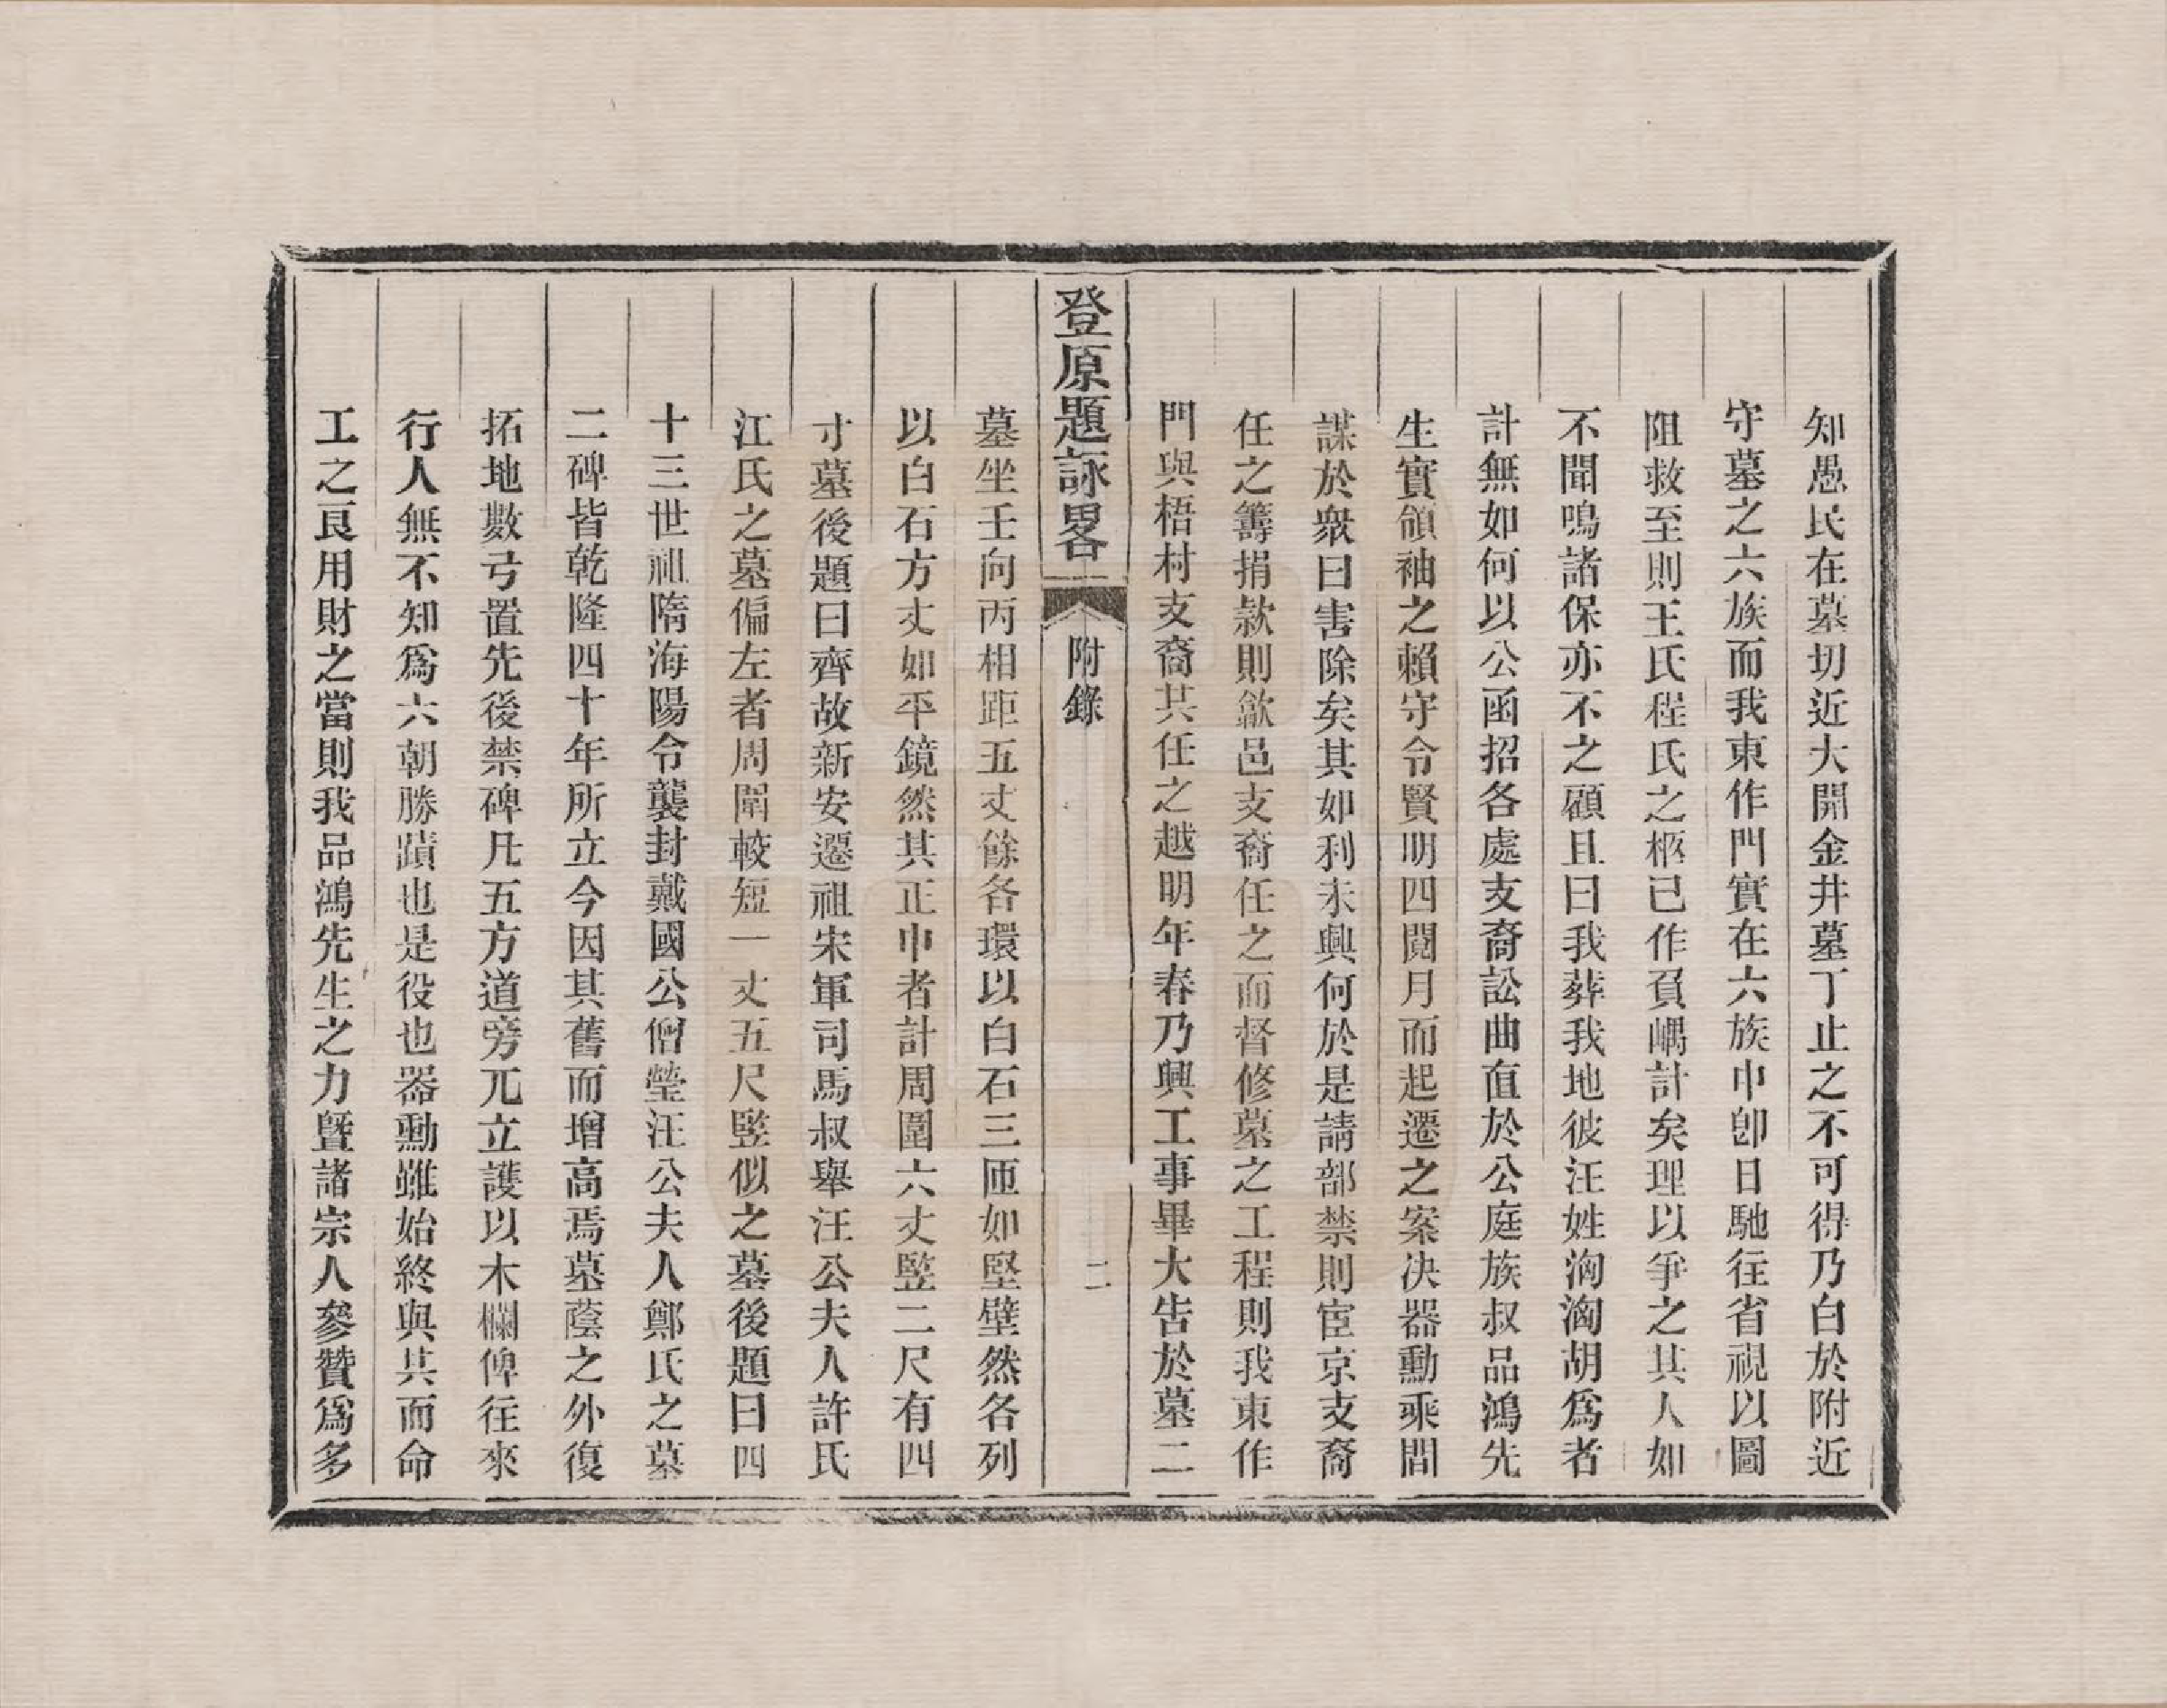 知愚民在墓切近大開金井墓丁止之不可得乃白於附近
守墓之六族而我東作門實在六族中卽日馳往省視以圖
阻救至則王氏程氏之柩已作負嵎計矣理以爭之其人如
不聞鳴諸保亦不之顧且曰我葬我地彼汪姓洶洶胡爲者
計無如何以公函招各處支裔訟曲直於公庭族叔品鴻先
生實領袖之賴守令賢明四閱月而起遷之案决器勳乘間
謀於衆曰害除矣其如利未興何於是請部禁則宦京支裔
任之籌捐款則歙邑支裔任之而督修墓之工程則我東作
門與梧村支裔共任之越明年春乃興工事畢大吿於墓二
登原題詠畧 附錄 二
墓坐壬向丙相距五丈餘各環以白石三匝如堅壁然各列
以白石方丈如平鏡然其正中者計周圍六丈竪二尺有四
寸墓後題曰齊故新安遷祖宋軍司馬叔舉汪公夫人許氏
江氏之墓偏左者周圍較短一丈五尺竪似之墓後題曰四
十三世祖隋海陽令襲封戴國公僧瑩汪公夫人鄭氏之墓
二碑皆乾隆四十年所立今因其舊而增高焉墓蔭之外復
拓地數弓置先後禁碑凡五方道旁兀立護以木欄俾往來
行人無不知爲六朝勝蹟也是役也器勳雖始終與共而命
工之良用財之當則我品鴻先生之力曁諸宗人參贊爲多